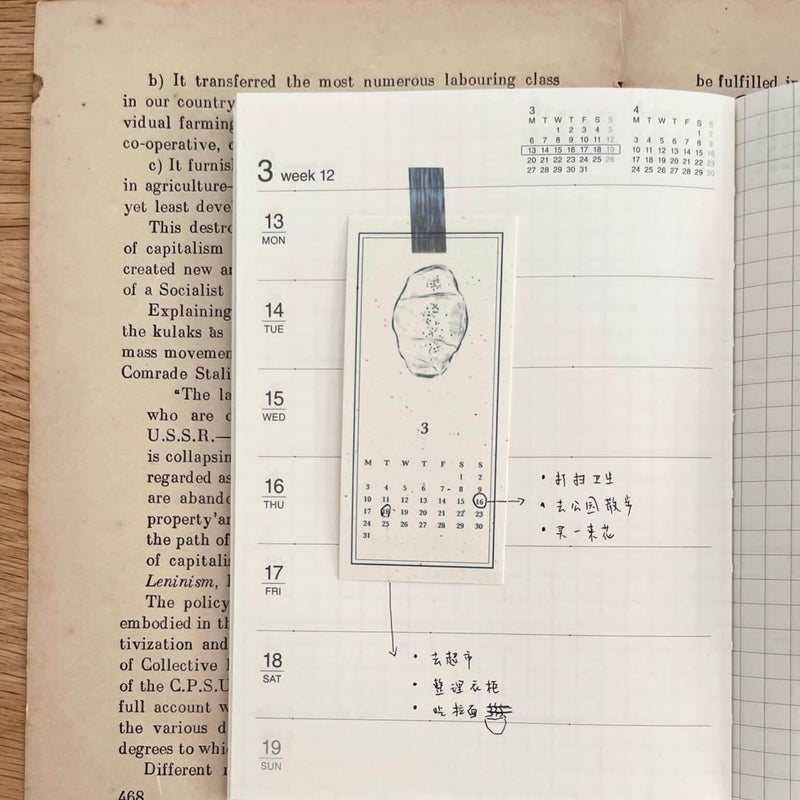 b) It transferred the most numerous labouring class
be fulfilled in
in our country
vidual farming
co-operative,
c) It furnis
in agriculture—
yet least deve
This destro
of capitalism
created new a
of a Socialist
Explaining
the kulaks as
mass movemen
Comrade Stali
"The la
who are
U.S.S.R.—
is collapsin
regarded as
are aband
property'a
the path of
of capitali
Leninism,
The policy
embodied in th
tivization and
of Collective
of the C.P.S.U
full account w
the various d
degrees to whi
Different
468
3 week 12
3
M T W T F S S
1 2 3 4 5
6 7 8 9 10 11 12
13 14 15 16 17 18 19
20 21 22 23 24 25 26
27 28 29 30 31
4
M T W T F S S
1 2
3 4 5 6 7 8 9
10 11 12 13 14 15 16
17 18 19 20 21 22 23
24 25 26 27 28 29 30
13
MON
14
TUE
15
WED
16
THU
17
FRI
18
SAT
19
SUN
3
M T W T F S S
1 2
3 4 5 6 7 8 9
10 11 12 13 14 15 16
17 18 19 20 21 22 23
24 25 26 27 28 29 30
31
• 打扫卫生
• 去公园散步
• 买一束花
• 去超市
• 整理衣柜
• 吃拉面